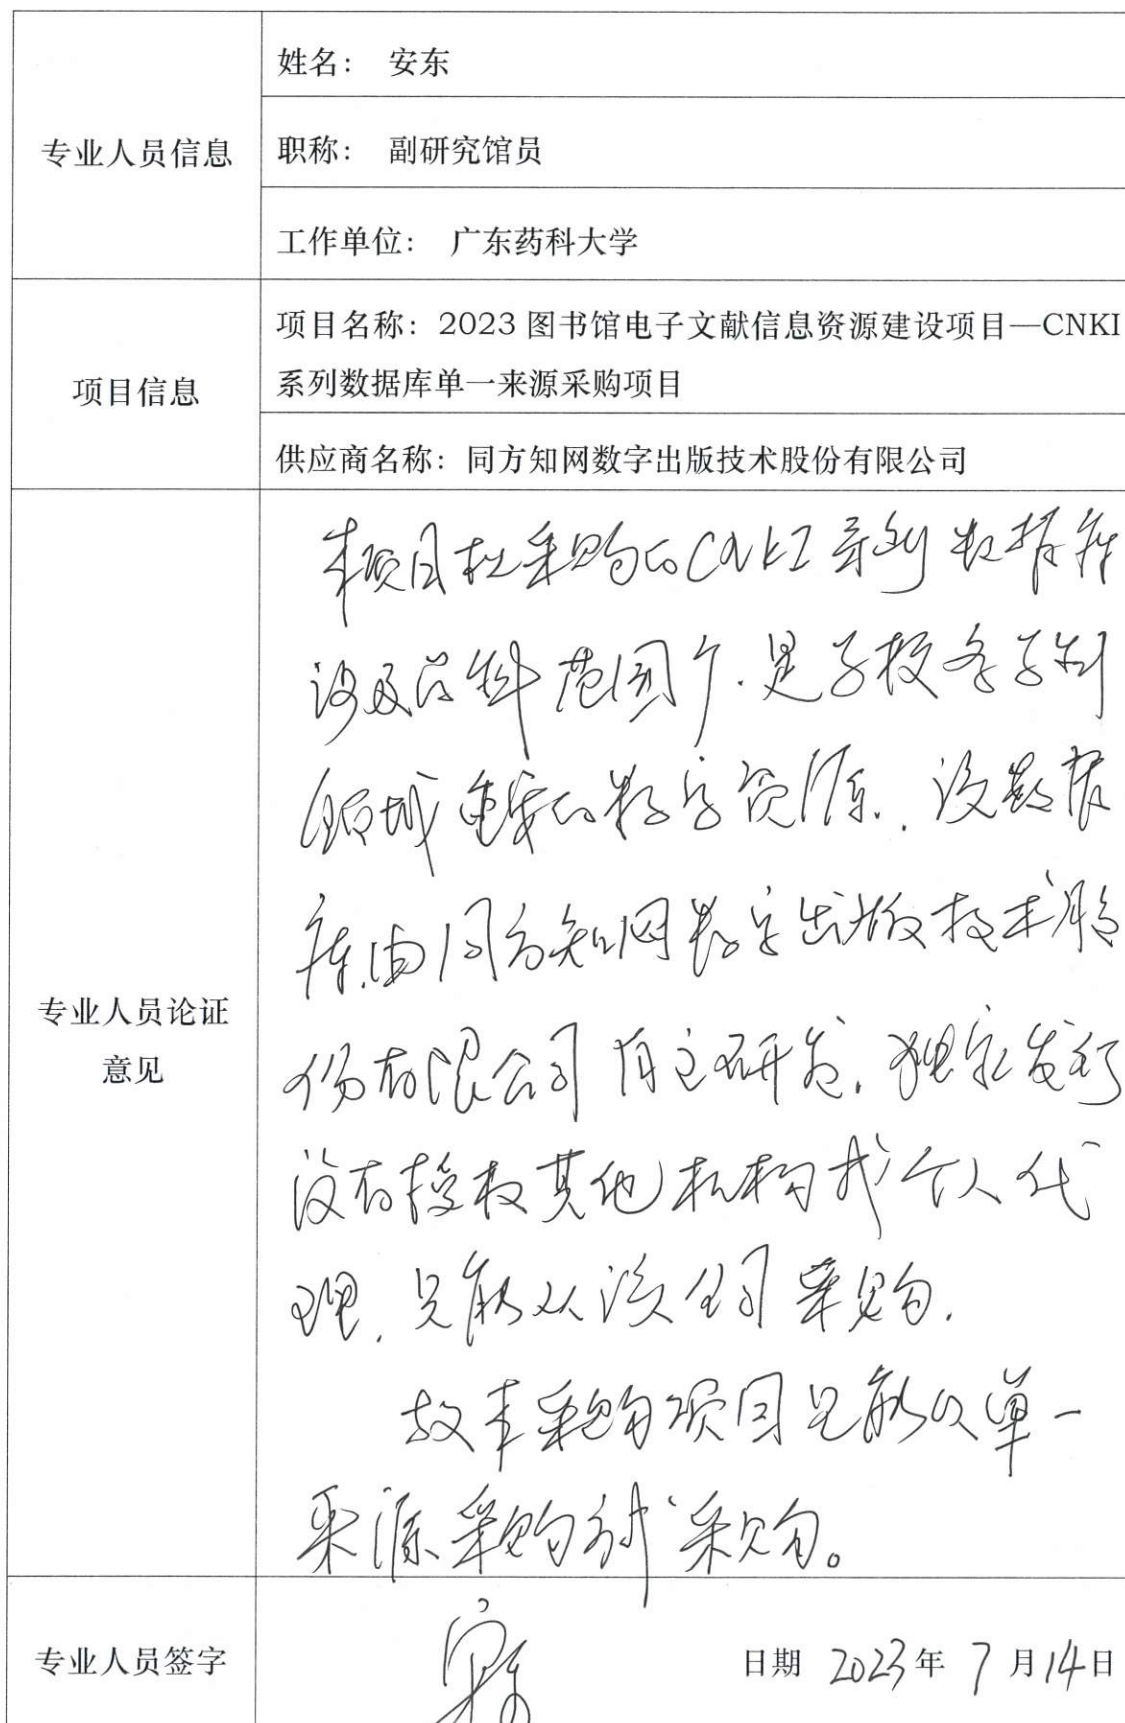 专业人员信息
姓名： 安东
职称： 副研究馆员
工作单位： 广东药科大学
项目信息
项目名称：2023 图书馆电子文献信息资源建设项目—CNKI
系列数据库单一来源采购项目
供应商名称：同方知网数字出版技术股份有限公司
专业人员论证
意见
本项目拟采购的CNKI系列数据库
涉及学科范围广.是学校各学科
领域重要的数字资源.该数据
库由同方知网数字出版技术股
份有限公司自主研发.独家发行
没有授权其他机构或个人代
理.只能从该公司采购.
故本采购项目只能以单一
来源采购形式采购。
专业人员签字
安东
日期 2023年 7月14日